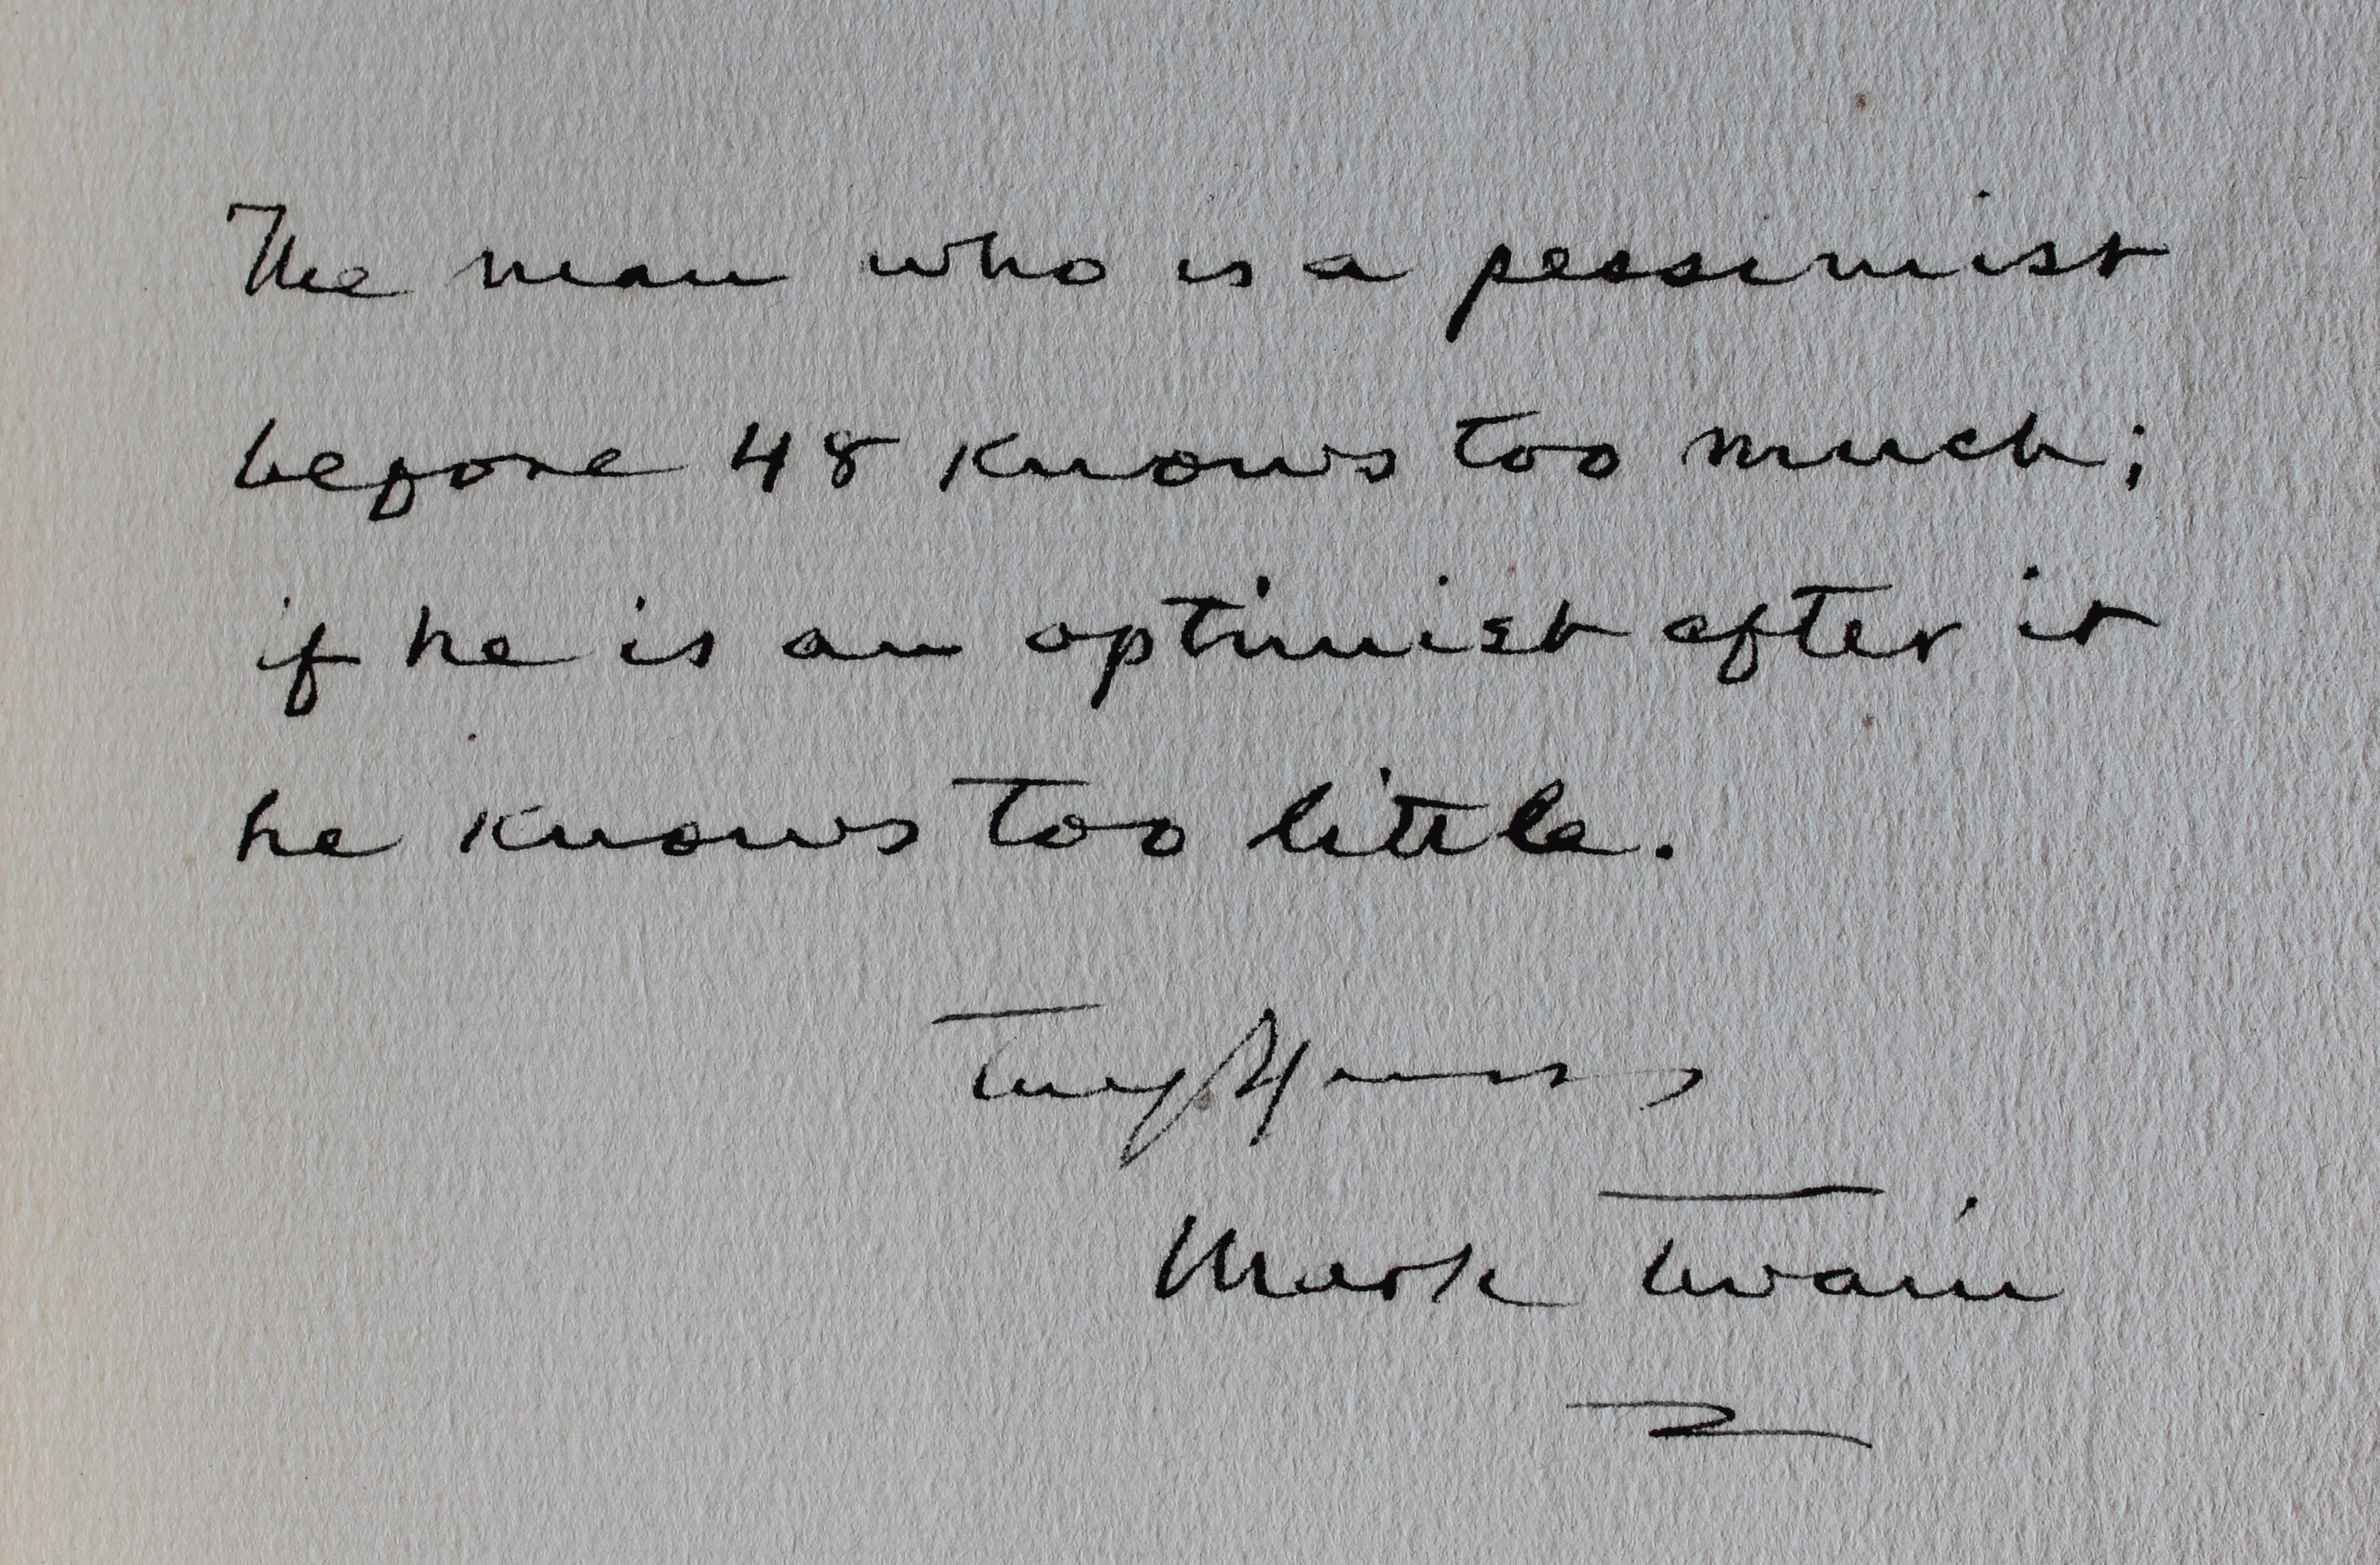 The man who is a pessimist
before 48 knows too much;
if he is an optimist after it
he knows too little.
Truly Yours,
Mark Twain